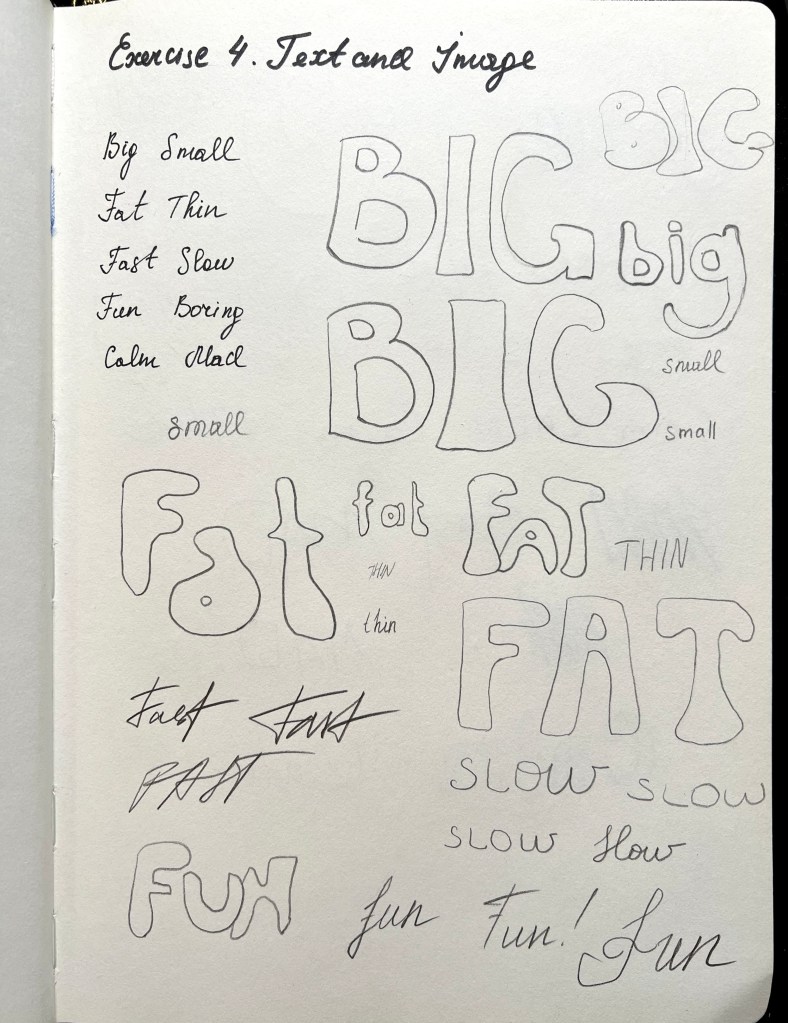 Exercise 4. Text and Image
BIG
Big Small
BIG
Fat Thin
big
Fast Slow
Fun Boring
BIG
Calm Mad
small
small
small
Fat
fat
FAT
THIN
THIN
thin
FAT
Fast Fast
FAST
SLOW SLOW
SLOW Slow
FUN
fun Fun! Fun